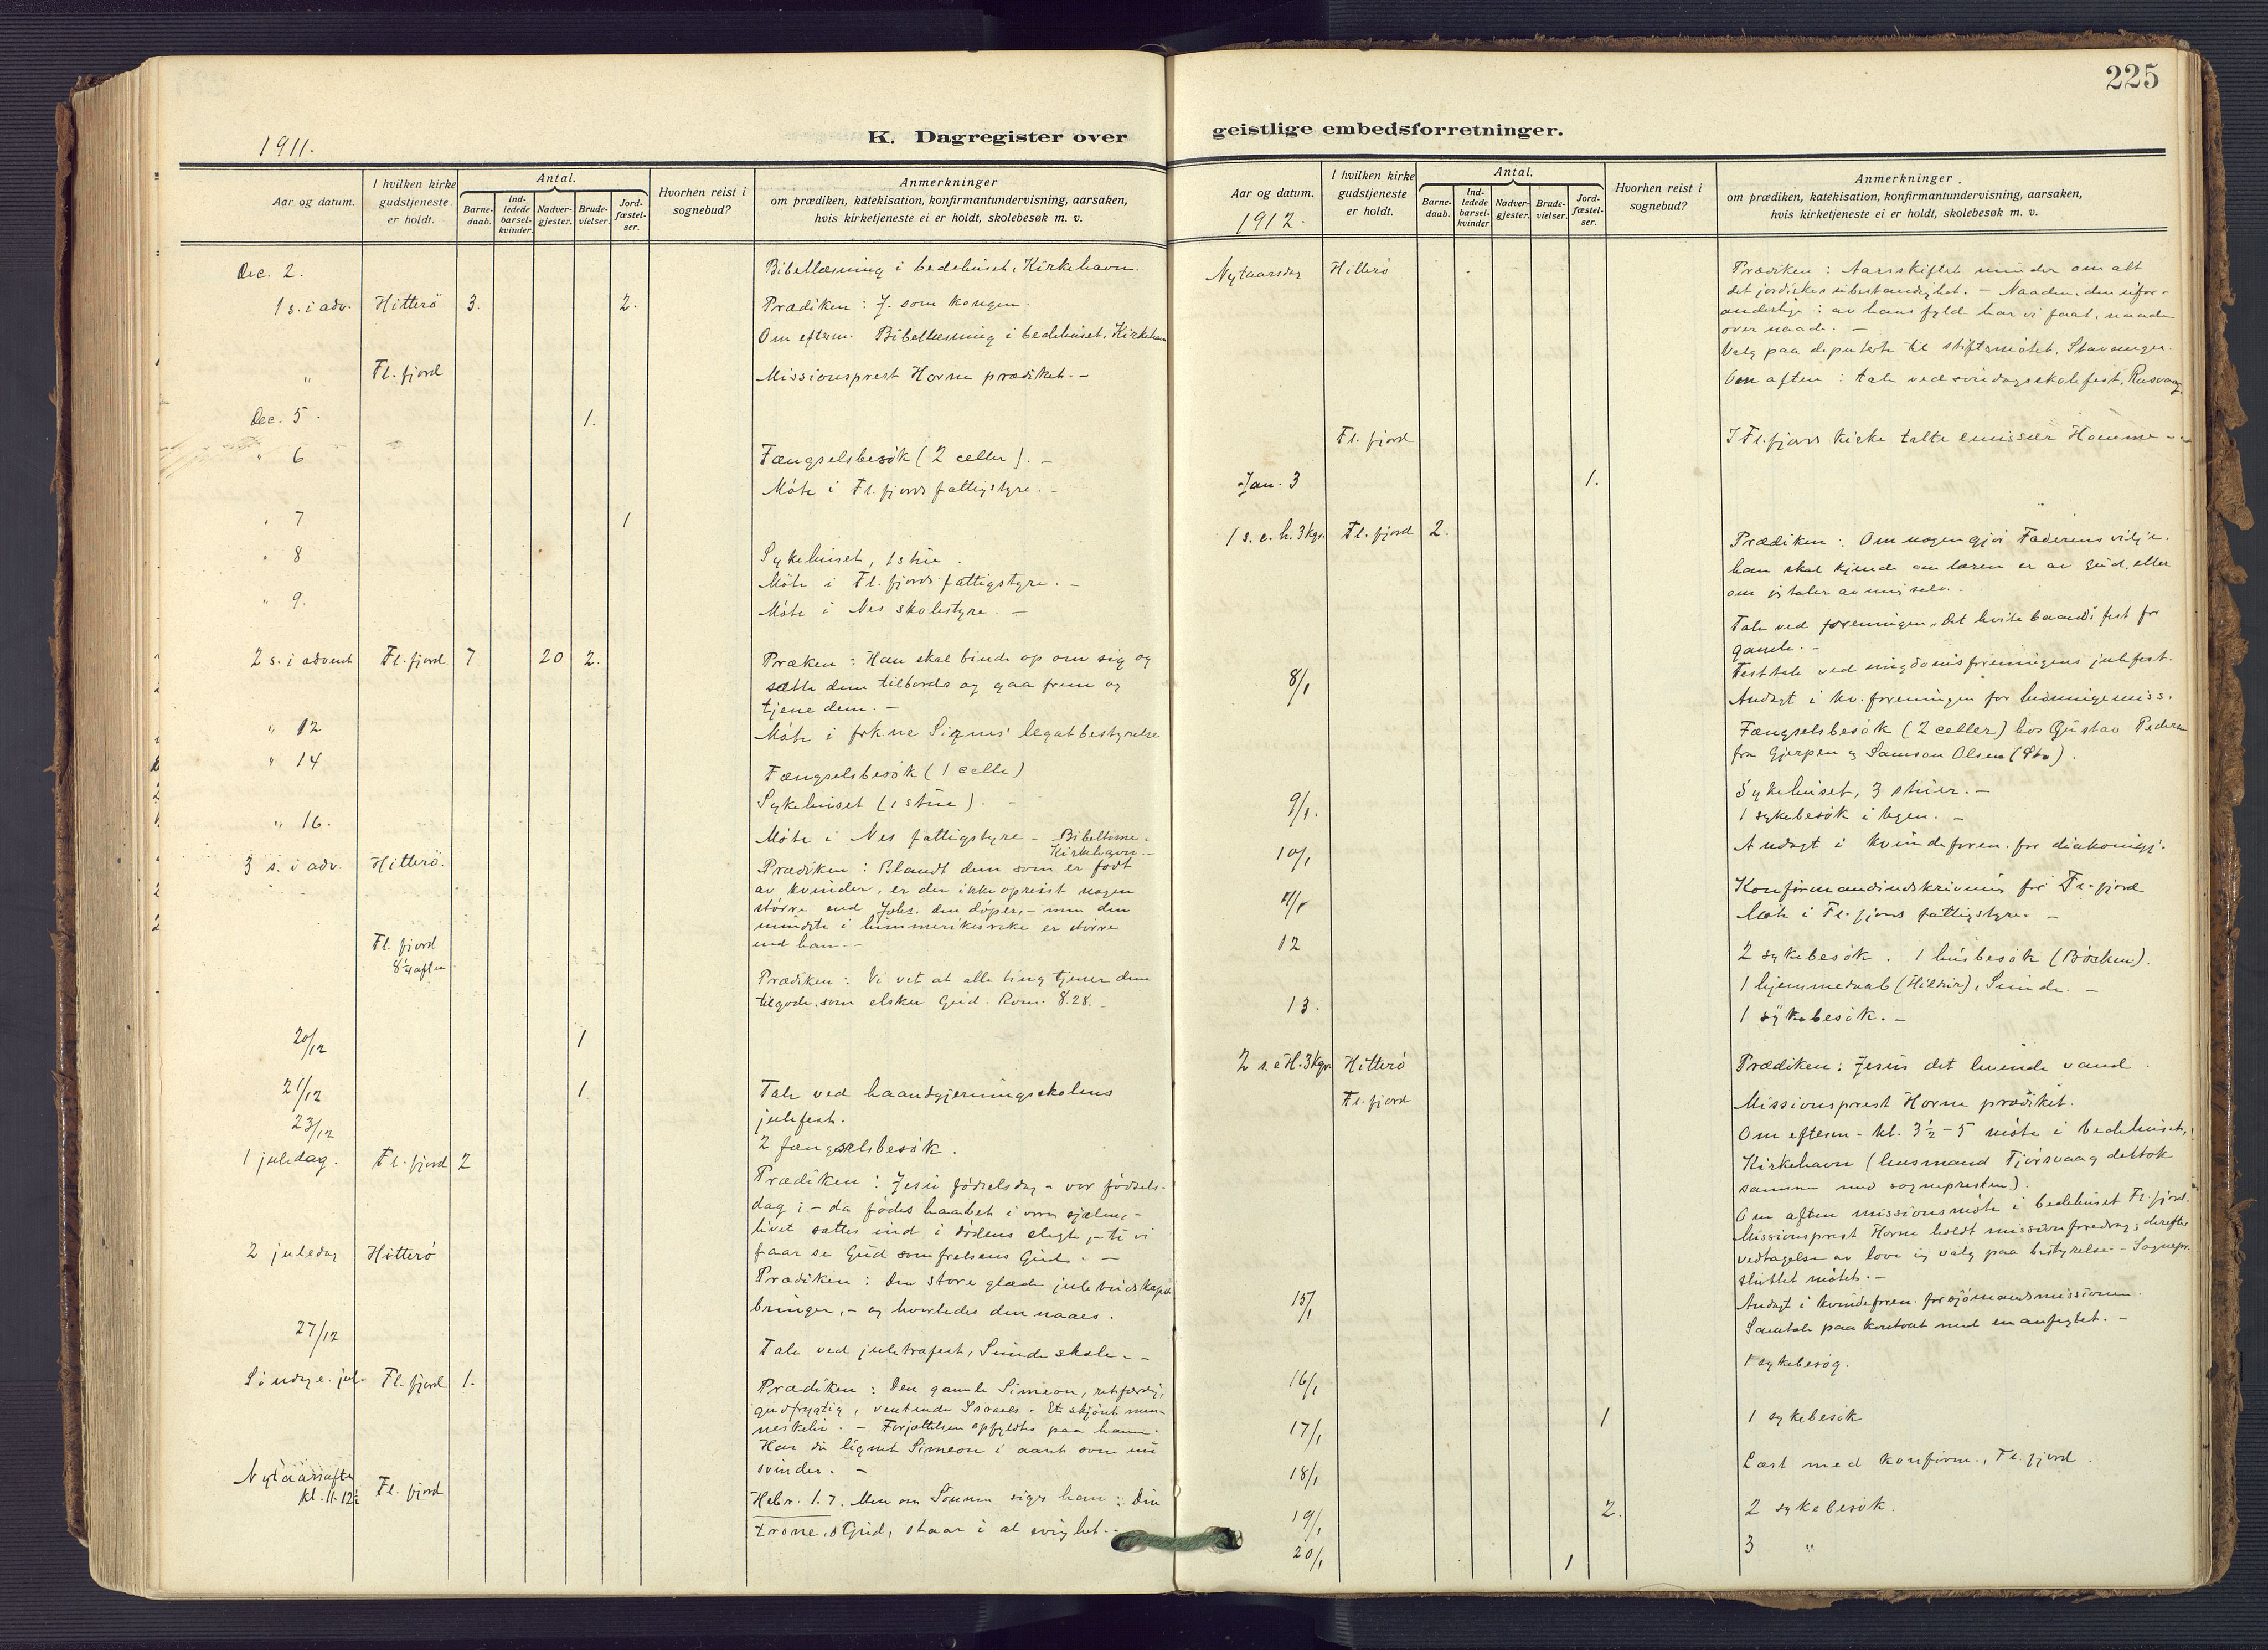 225
K. Dagregister over
geistlige embedsforretninger.
1911.
Aar og datum.
I hvilken kirke
gudstjeneste
er holdt.
Antal.
Barne-
daab.
Ind-
ledede
barsel-
kvinder.
Nadver-
gjester.
Brude-
vielser.
Jord-
fæstel-
ser.
Hvorhen reist i
sognebud?
Anmerkninger
om prædiken, katekisation, konfirmantundervisning, aarsaken,
hvis kirketjeneste ei er holdt, skolebesøk m. v.
Dec. 2. Bibellæsning i bedehuset, Kirkehavn.
1 s. i adv. Hitterö 3. 2. Prædiken: J. som kongen.
Om efterm. Bibellæsning i bedehuset, Kirkehavn
" Fl. fjord Missionsprest Horne prædiket. -
Dec. 5. 1.
" 6 Fængselsbesök (2 celler). -
Möte i Fl. fjords fattigstyre. -
" 7 1
" 8 Sykehuset, 1 stue.
Möte i Fl. fjords fattigstyre. -
" 9. Möte i Nes skolestyre. -
2 s. i advent Fl. fjord 7 20 2. Præken: Han skal binde op om sig og
sætte dem tilbords og gaa frem og
tjene dem. -
" 12 Möte i frkne Signes' legatbestyrelse
" 14 Fængselsbesök (1 celle)
Sykehuset (1 stue). -
" 16. Möte i Nes fattigstyre - Bibeltime.
Kirkehavn. -
3 s. i adv. Hitterö. Prædiken: Blandt dem som er født
av kvinder, er der ikke opreist nogen
större end Johs. den döper, - men den
mindste i himmerikes rike er större
end han. -
Fl. fjord
8¼ aften
Prædiken: Vi vet at alle ting tjener dem
tilgode, som elsker Gud. Rom. 8.28. -
20/12 1
21/12 1 Tale ved haandgjerningsskolens
julefest.
23/12 2 fængselsbesök.
1 juledag. Fl. fjord 2 Prædiken: Jesu födselsdag - vor födsels-
dag: - da födes haabet i vore sjæle, -
livet sattes ind i dödens slegt, - ti vi
faar se Gud som frelsens Gud. -
2 juledag Hitterö Prædiken: Den store glæde julebudskapet
bringer, - og hvorledes den naaes.
27/12 Tale ved juletræfest, Sunde skole. -
Söndag e. jul Fl. fjord 1. Prædiken: Den gamle Simeon, retfærdig,
gudfrygtig, ventende Israels. Et skjönt men-
neskeliv. - Forjættelsen opfyldtes paa ham.
Har du lignet Simeon i aaret som nu
svinder. -
Nytaarsaften
kl. 11-12½ Fl. fjord
Hebr. 1.7. Men om Sönnen siger han: Din
trone, o Gud, staar i al evighet. -
Aar og datum.
1912.
I hvilken kirke
gudstjeneste
er holdt.
Antal.
Barne-
daab.
Ind-
ledede
barsel-
kvinder
Nadver-
gjester.
Brude-
vielser.
Jord-
fæstel-
ser.
Hvorhen reist i
sognebud?
Anmerkninger
om prædiken, katekisation, konfirmantundervisning, aarsaken,
hvis kirketjeneste ei er holdt, skolebesøk m. v.
Nytaarsdag Hitterö Prædiken: Aarsskiftet minder om alt
det jordiskes ubestandighet. - Naaden, den ufor-
anderlige: av hans fylde har vi faat, naade
over naade. -
Valg paa deputerte til stiftsmötet, Stavanger.
Om aften: tale ved söndagsskolefest, Rasvaag
Fl. fjord I Fl. fjords kirke talte emissær Homme -
Jan. 3 1.
1 s. e. h. 3 kgr. Fl. fjord 2. Prædiken: Om nogen gjör Faderens vilje.
han skal kjende om læren er av Gud, eller
om jeg taler av mig selv. -
Tale ved foreningen „Det hvite baand"s fest for
gamle. -
Festtale ved ungdomsforeningens julefest.
8/1 Andagt i kv. foreningen for hedningemiss.
Fængselsbesök (2 celler) hos Gustav Pedersen
fra Gjerpen og Samson Olsen.
9/1. Sykehuset, 3 stuer. -
1 sykebesök i byen. -
10/1 Andagt i kvindeforen. for diakonigj.
11/1 Konfirmandindskrivning for Fl. fjord
Möte i Fl. fjords fattigstyre. -
12 2 sykebesök. 1 husbesök (Böcken).
1 hjemmedaab (Hildur), Sunde. -
13. 1 sykebesök. -
2 s. e H. 3 kgr. Hitterö Prædiken: Jesus det levende vand.
Fl. fjord Missionsprest Horne prædiket.
Om efterm. kl. 3½-5 möte i bedehuset,
Kirkehavn (husmand Tjörsvaag deltok
sammen med sognepresten).
Om aften missionsmöte i bedehuset Fl. fjord.
Missionsprest Horne holdt missionsforedrag; derefter
vedtagelse av love og valg paa bestyrelse. - Sognepr.
sluttet mötet. -
15/1 Andagt i kvindeforen. for sjömandsmissionen.
Samtale paa kontoret med en anfegtet. -
1 sykebesøg.
16/1
17/1 1 1 sykebesök
18/1 Læst med konfirm., Fl. fjord.
19/1 2. 2 sykebesök.
20/1 1 3 "